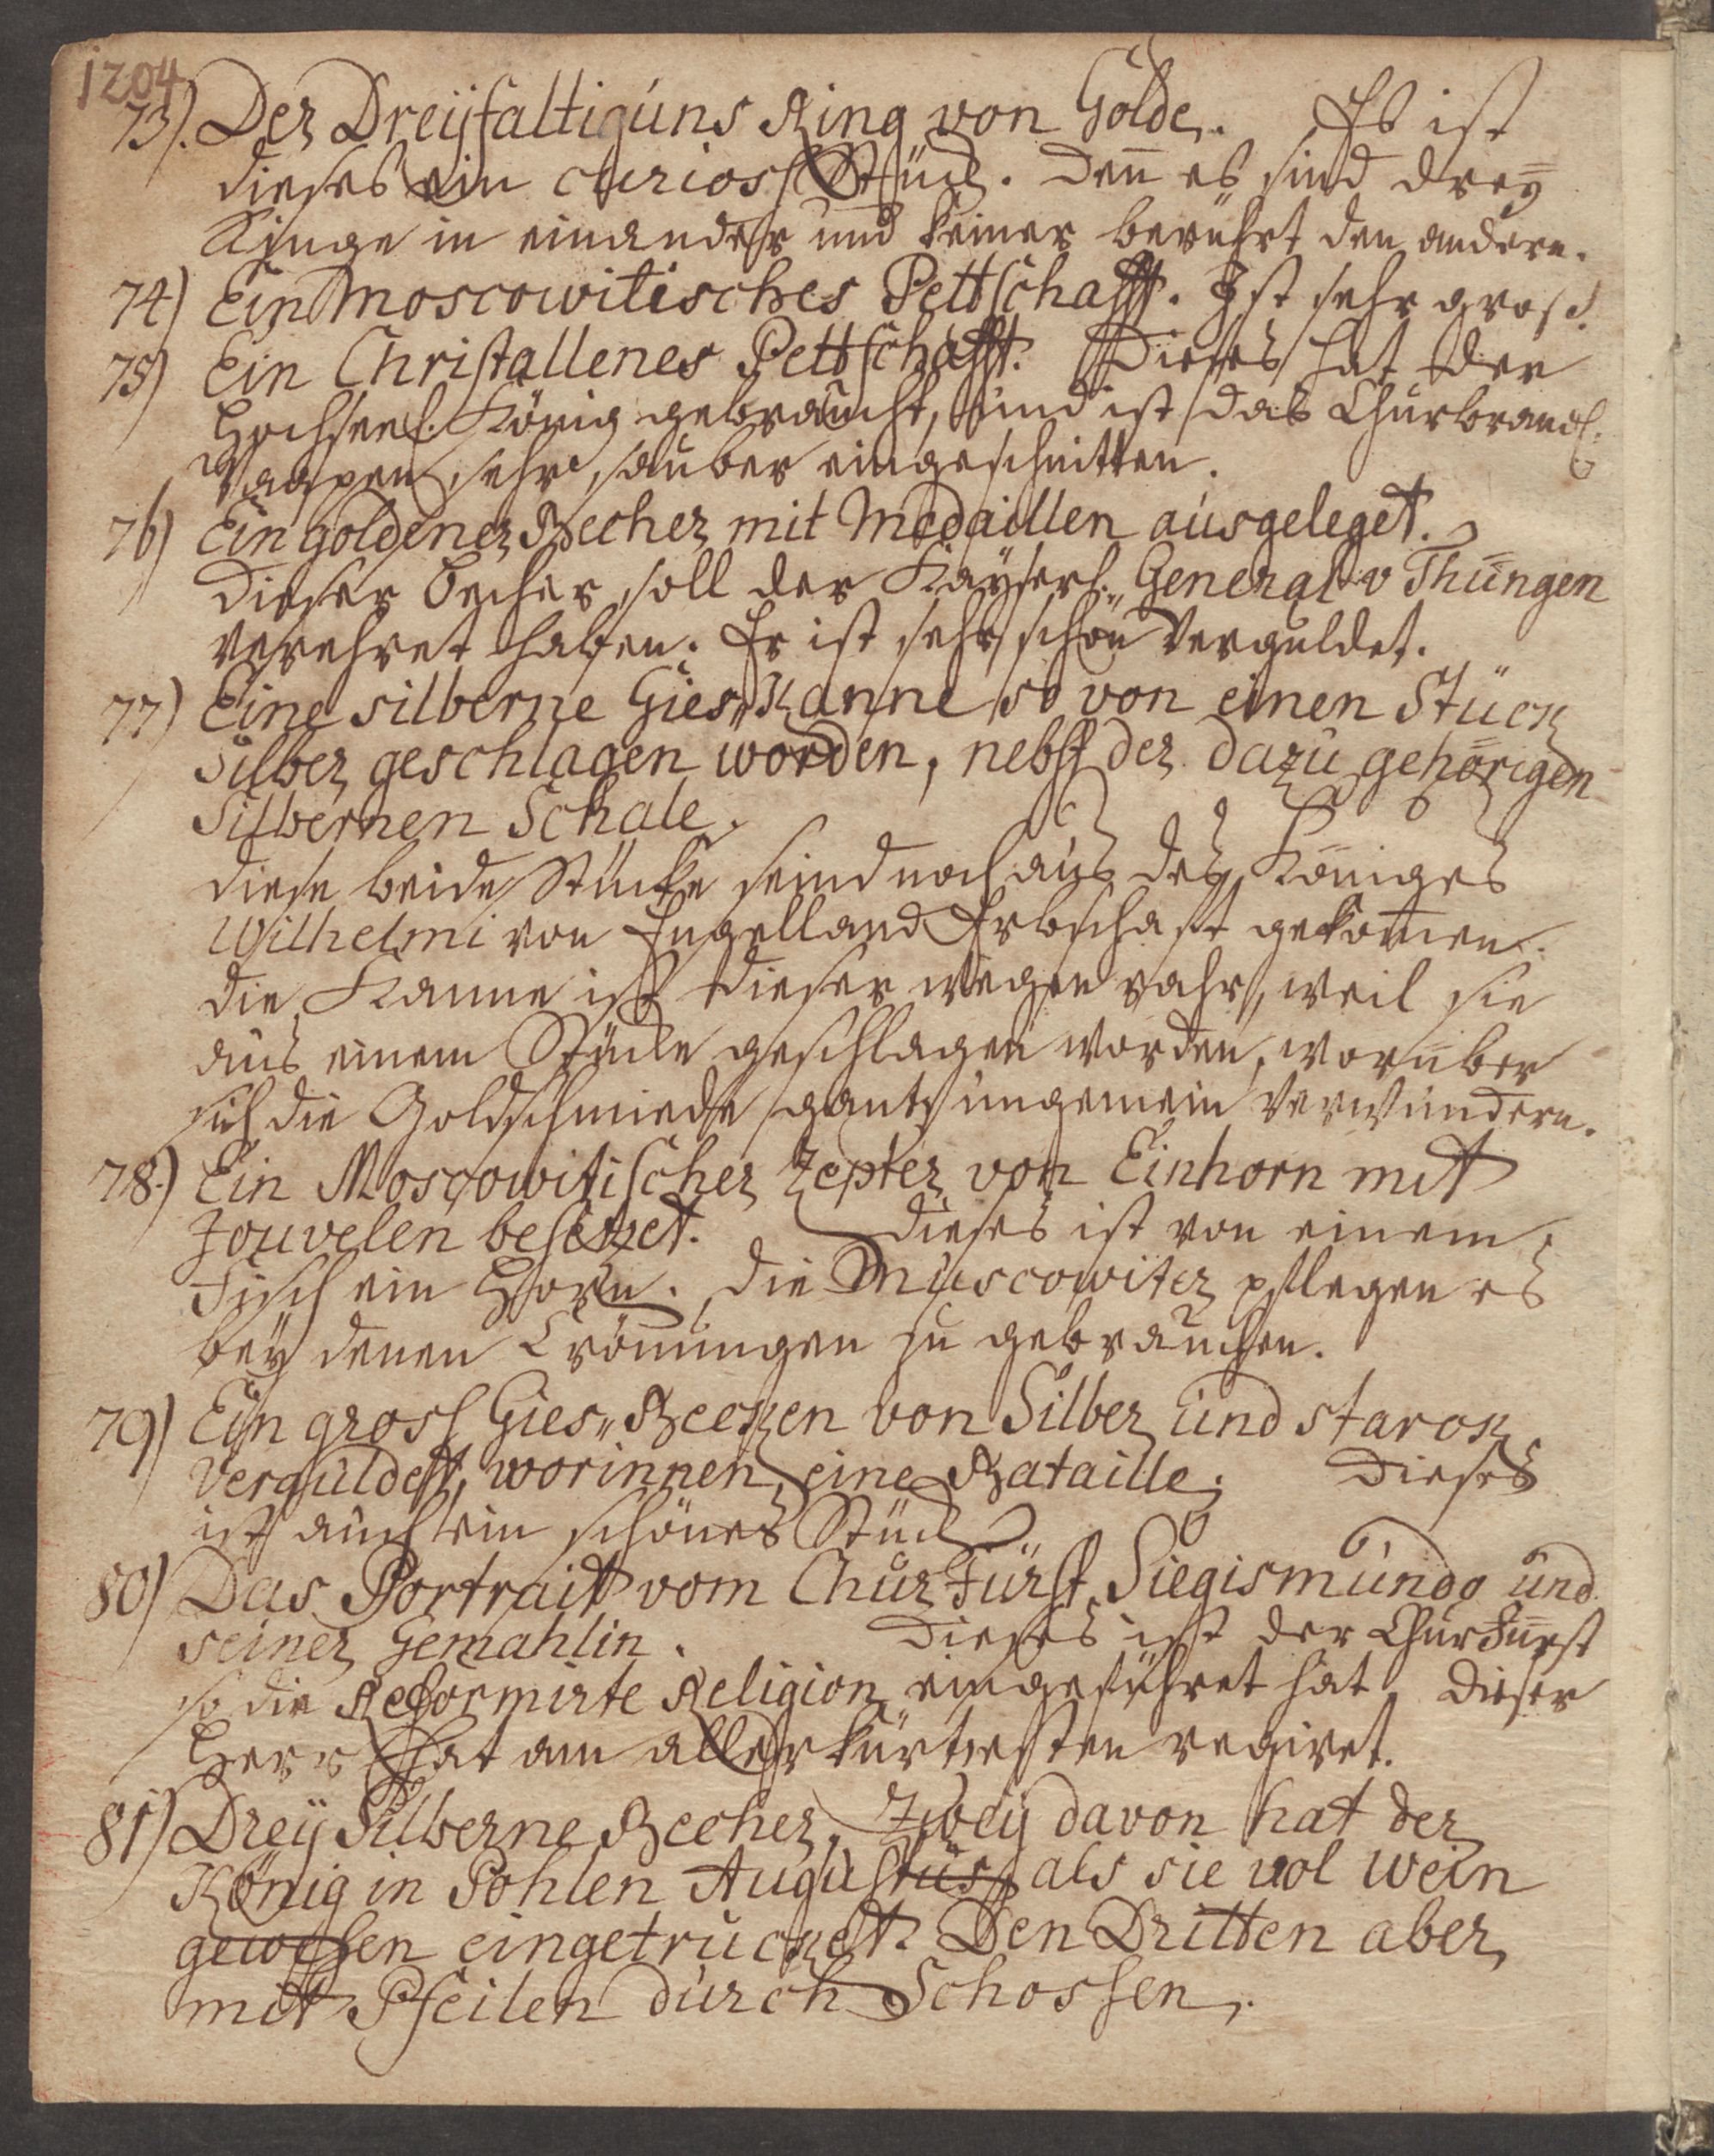 1204
73). Der Dreÿfaltiguns Ring von Golde. Es ist
dieses ein curios Stück. Deñ es sind dreÿ
Ringe in einander und keiner berührt den andern.
74) Ein Moscowitisches Pettschafft. Ist sehr groß.
75) Ein Christallenes Pettschafft. Dieses hat der
Hochseel. König gebraucht, und ist das Churbrandl.
Wappen sehr sauber eingeschnitten.
76) Ein goldener Becher mit Medaillen ausgeleget.
Dieser Becher soll der Kaÿserl. General v Thüngen
verehret haben. Er ist sehr schön verguldet.
77) Eine silberne Gies„Kanne so von einen Stück
Silber geschlagen worden, nebst der dazu gehörigen
Silbernen Schale.
Diese beide Stücke seind noch aus des Königes
Wilhelmi von Engelland Erbschaft gekom̄en.
Die Kanne ist dieser wegen rahr, weil sie
aus einem Stücke geschlagen worden, worüber
sich die Goldschmiede gantz ungemein verwundern.
78.) Ein Moscowitischer Zepter von Einhorn mit
Jouvelen besetzet. Dieses ist von einem
Fisch ein Horn. Die Muscowiter pflegen es
beÿ denen Crönungen zu gebrauchen.
79) Ein gross Gies„Becken von Silber und starck
verguldet, worinnen eine Bataille. Dieses
ist auch ein schönes Stück
80) Das Portrait vom Churfürst Siegismundo und
seiner Gemahlin. Dieses ist der Churfürst
so die Reformirte Religion eingeführet hat. Dieser
Herr hat am allerkürtzesten regiret.
81) Dreÿ Silberne Becher, Zweÿ davon hat der
König in Pohlen Augustus als sie vol Wein
gewesen eingetrucket. Den Dritten aber
mit Pfeilen durch Schossen.